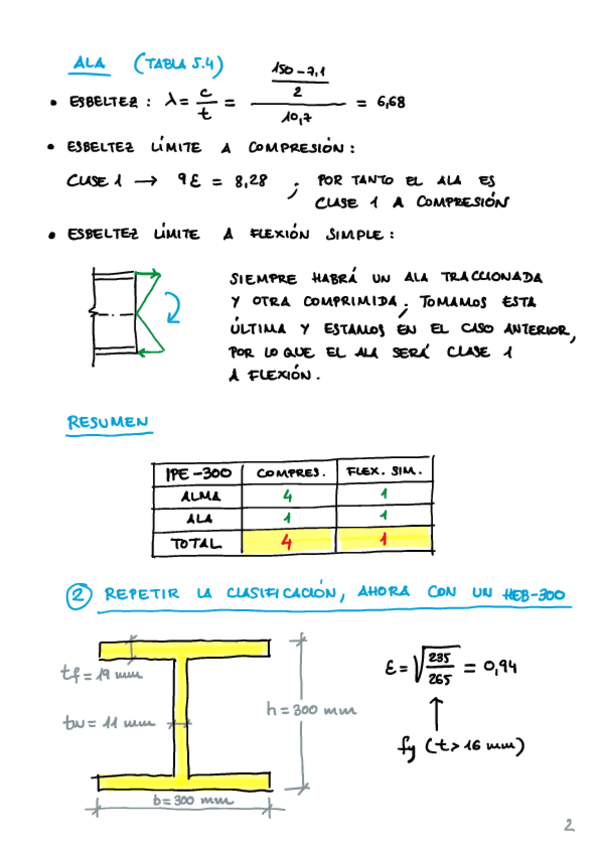 ALA (TABLA 5.4)
• ESBELTEZ : λ = c/t = ((150-7,1)/2)/10,7 = 6,68
• ESBELTEZ LÍMITE A COMPRESIÓN :
CLASE 1 → 9ε = 8,28 ; POR TANTO EL ALA ES
CLASE 1 A COMPRESIÓN
• ESBELTEZ LÍMITE A FLEXIÓN SIMPLE :
SIEMPRE HABRÁ UN ALA TRACCIONADA
Y OTRA COMPRIMIDA ; TOMAMOS ESTA
ÚLTIMA Y ESTAMOS EN EL CASO ANTERIOR,
POR LO QUE EL ALA SERÁ CLASE 1
A FLEXIÓN.
RESUMEN
IPE-300 COMPRES. FLEX. SIM.
ALMA 4 1
ALA 1 1
TOTAL 4 1
2 REPETIR LA CLASIFICACIÓN, AHORA CON UN HEB-300
tf = 19 mm
tw = 11 mm
h = 300 mm
b = 300 mm
ε = √(235/265) = 0,94
↑
fy (t > 16 mm)
2